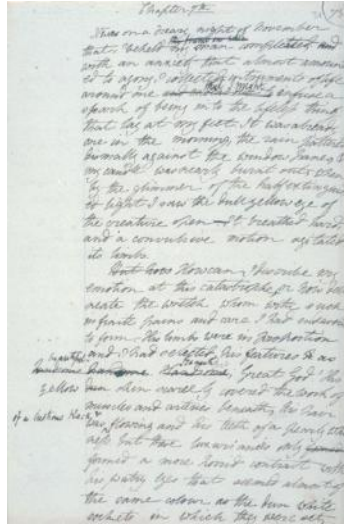 Chapter 7th
It was on a dreary night of November
that I beheld my man completed and
with an anxiety that almost amoun
ted to agony I collected instruments of life
around me that I might infuse a
spark of being into the lifeless thing
that lay at my feet. It was already
one in the morning, the rain pattered
dismally against the window panes, &
my candle was nearly burnt out, when
by the glimmer of the half extinguish
ed light I saw the dull yellow eye of
the creature open. It breathed hard,
and a convulsive motion agitated
its limbs.
But how How can I describe my
emotion at this catastrophe, or how deli
neate the wretch whom with such
infinite pains and care I had endeavoured
to form. His limbs were in proportion
and I had selected his features as
beautiful
handsome handsome. Great God! His
yellow dun skin scarcely covered the work of
muscles and arteries beneath; his hair
of a lustrous black &
was flowing and his teeth of a pearly white
ness but these luxuriances only
formed a more horrid contrast with
his watry eyes that seemed almost of
the same colour as the dun white
sockets in which they were set